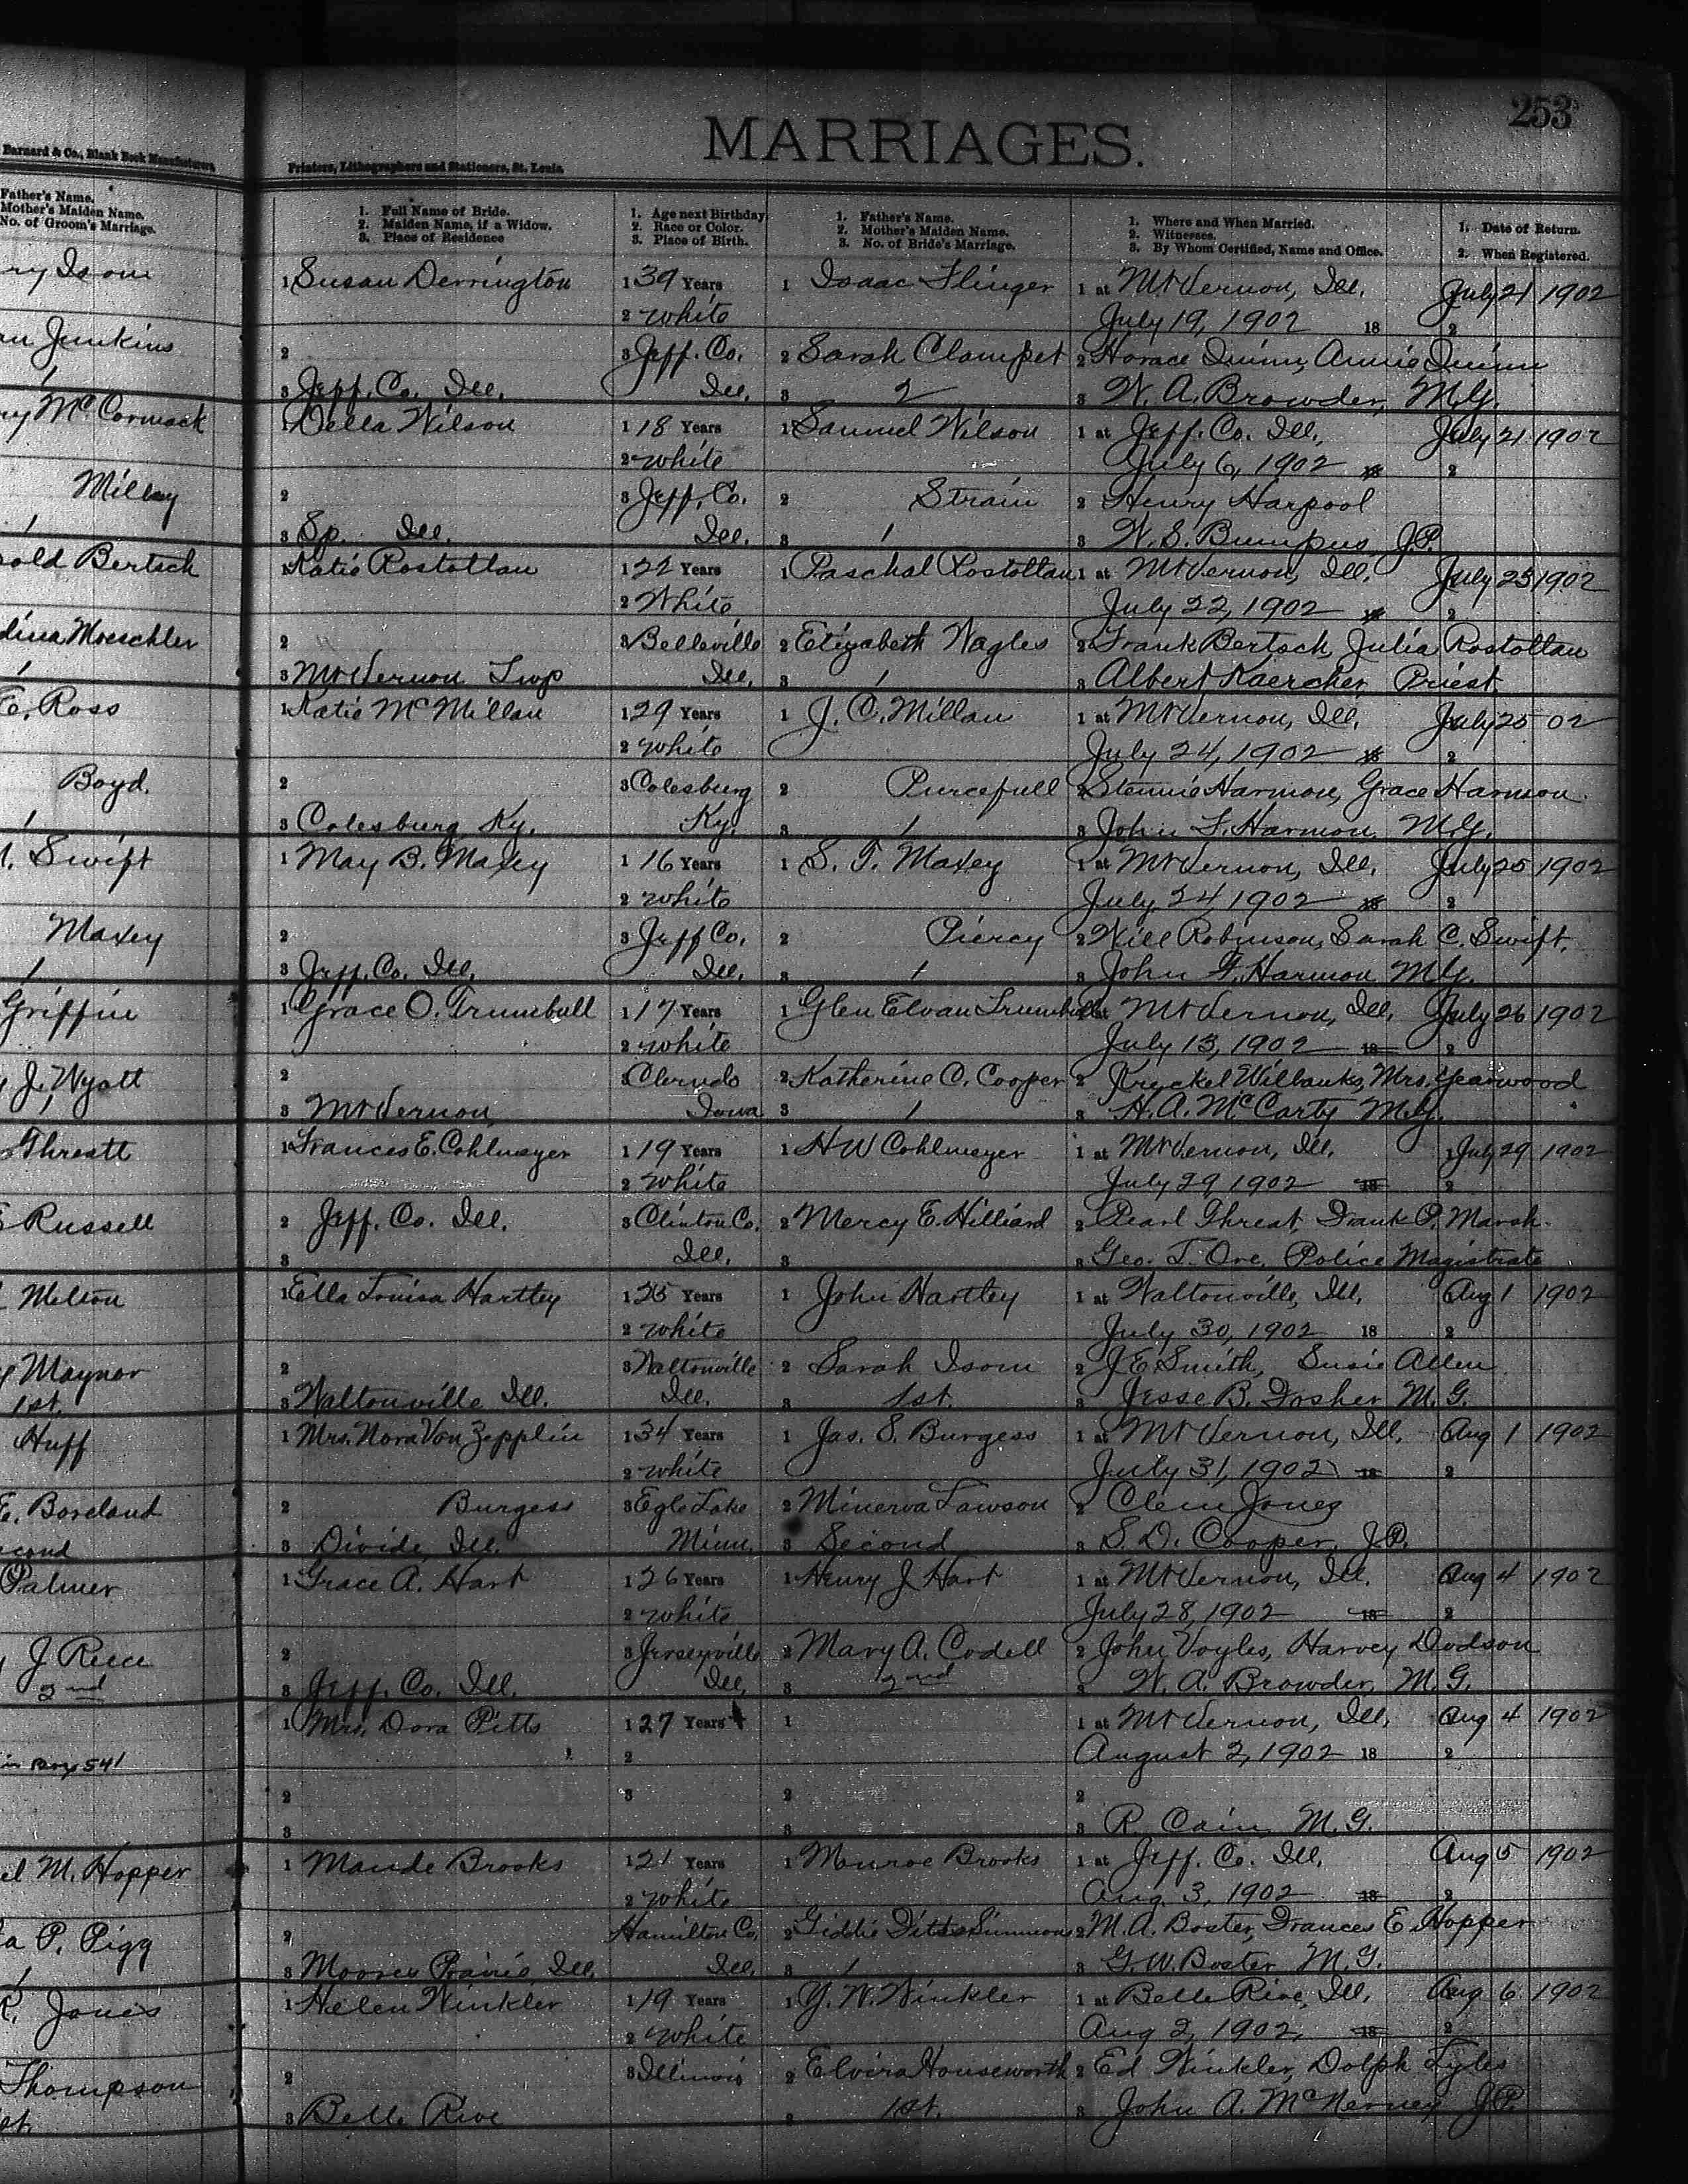 253
MARRIAGES.
Barnard & Co., Blank Book Manufacturers,
Printers, Lithographers and Stationers, St. Louis.
Father's Name.
Mother's Maiden Name.
No. of Groom's Marriage.
1. Full Name of Bride.
2. Maiden Name, if a Widow.
3. Place of Residence
1. Age next Birthday
2. Race or Color.
3. Place of Birth.
1. Father's Name.
2. Mother's Maiden Name.
3. No. of Bride's Marriage.
1. Where and When Married.
2. Witnesses.
3. By Whom Certified, Name and Office.
1. Date of Return.
2. When Registered.
ry Isom 1 Susan Derrington 1 39 Years 1 Isaac Flinger 1 at Mt Vernon, Ill. July 21 1902
2 white July 19, 1902 18 2
an Junkins 2 3 Jeff. Co. 2 Sarah Clampet 2 Horace Quinn, Annie Quinn
1 3 Jeff. Co. Ill. Ill. 3 2 3 W. A. Browder, M.G.
ry McCormack 1 Della Wilson 1 18 Years 1 Samuel Wilson 1 at Jeff. Co. Ill., July 21 1902
2 white July 6, 1902 18 2
Millay 2 3 Jeff. Co. 2 Strain 2 Henry Harpool
1 3 Sp. Ill. Ill. 3 1 3 W. S. Bumpus J.P.
old Bertsch 1 Katie Rostottan 1 22 Years 1 Paschal Rostottan 1 at Mt Vernon, Ill. July 23 1902
2 White July 22, 1902 18 2
dina Moeschler 2 3 Belleville 2 Elizabeth Nagles 2 Frank Bertsch, Julia Rostottan
1 3 Mt Vernon Twp Ill. 3 1 3 Albert Kaercher Priest
E. Ross 1 Katie McMillan 1 29 Years 1 J. C. Millan 1 at Mt Vernon, Ill. July 25 02
2 white July 24, 1902 18 2
Boyd. 2 3 Colesburg 2 Purcefull 2 Stennie Harmon, Grace Harmon
1 3 Colesburg Ky. Ky. 3 1 3 John F. Harmon, M.G.
Swift 1 May B. Maxey 1 16 Years 1 S. T. Maxey 1 at Mt Vernon, Ill. July 25 1902
2 white July 24, 1902 18 2
Maxey 2 3 Jeff Co. 2 Piercy 2 Will Robinson, Sarah C. Swift.
1 3 Jeff. Co. Ill. Ill. 3 1 3 John F. Harmon M.G.
Griffin 1 Grace O. Trumbull 1 17 Years 1 Glen Elvan Trumbull 1 at Mt Vernon, Ill. July 26 1902
2 white July 13, 1902 18 2
J. Wyatt 2 3 Clerndo 2 Katherine O. Cooper 2 Wilbanks, Mrs. Yearwood
1 3 Mt Vernon, Iowa 3 1 3 H. A. McCarty M.G.
Threatt 1 Frances E. Cohlmeyer 1 19 Years 1 H W Cohlmeyer 1 at Mt Vernon, Ill. 1 July 29 1902
2 white July 29, 1902 18 2
Russell 2 Jeff. Co. Ill. 3 Clinton Co. 2 Mercy E. Hilliard 2 Pearl Threat Frank P. Marsh.
3 Ill. 3 3 Geo. T. Ore, Police Magistrate
Melton 1 Ella Louisa Hartley 1 25 Years 1 John Hartley 1 at Waltonville, Ill. Aug 1 1902
2 white July 30, 1902 18 2
Maynor 2 3 Waltonville 2 Sarah Isom 2 J E Smith, Susie Allen
1st. 3 Waltonville Ill. Ill. 3 1st. 3 Jesse B. Fosher M. G.
Huff 1 Mrs. Nora Von Zepplin 1 34 Years 1 Jas. S. Burgess 1 at Mt Vernon, Ill. Aug 1 1902
2 white July 31, 1902 18 2
E. Boreland 2 Burgess 3 Egle Lake 2 Minerva Lawson 2 Clem Jones
second 3 Divide Ill. Minn. 3 Second 3 S. D. Cooper. J.P.
Palmer 1 Grace A. Hart 1 26 Years 1 Henry J Hart 1 at Mt Vernon, Ill. Aug 4 1902
2 white July 28, 1902 18 2
J Reece 2 3 Jerseyville 2 Mary A. Codell 2 John Voyles, Harvey Dodson
2nd 3 Jeff. Co. Ill. Ill. 3 2nd 3 W. A. Browder, M. G.
1 Mrs. Dora Pitts 1 27 Years 1 1 at Mt Vernon, Ill. Aug 4 1902
in Box 541 2 August 2, 1902 18 2
2 3 2 2
3 3 R. Cain, M. G.
el M. Hopper 1 Maude Brooks 1 21 Years 1 Monroe Brooks 1 at Jeff. Co. Ill. Aug 5 1902
2 white Aug. 3, 1902 18 2
a P. Pigg 2 Hamilton Co. 2 Giddie Simmons 2 M. A. Boster, Frances E. Hopper
1 3 Moores Prairie Ill. Ill. 3 1 3 G. W. Boster M. G.
R. Jones 1 Helen Winkler 1 19 Years 1 G. W. Winkler 1 at Belle Rive, Ill. Aug 6 1902
2 white Aug 2, 1902. 18 2
Thompson 2 3 Illinois 2 Elvira Houseworth 2 Ed Winkler, Dolph Lyles
st. 3 Belle Rive 3 1st. 3 John A. McNerney J.P.